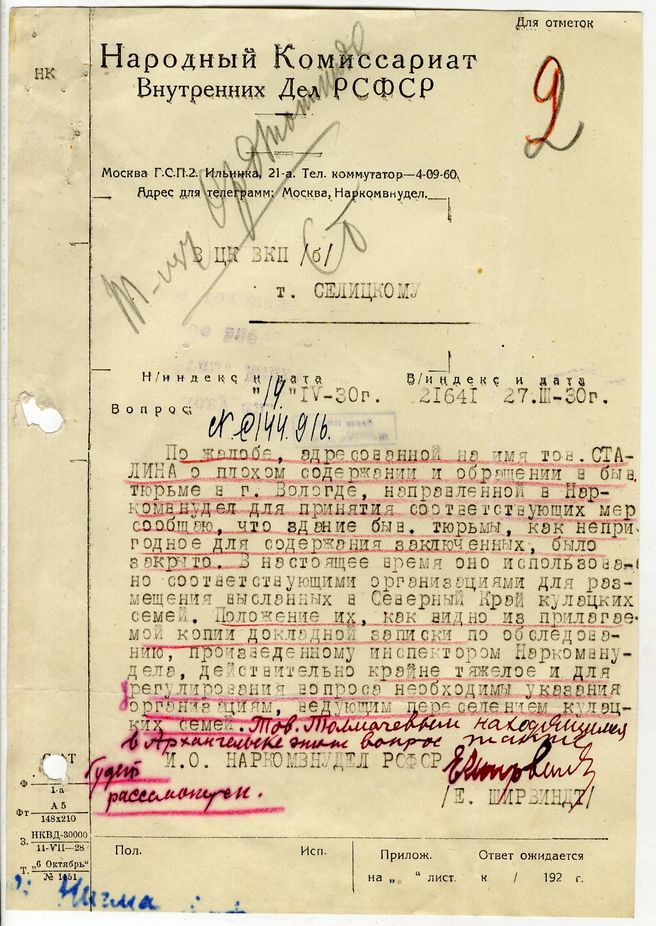 Для отметок
НК
Народный Комиссариат
Внутренних Дел РСФСР
2
Москва Г.С.П.2. Ильинка, 21-а. Тел. коммутатор—4-09-60.
Адрес для телеграмм: Москва, Наркомвнудел.
В ЦК ВКП /б/
т. СЕЛИЦКОМУ
Н/индекс и дата В/индекс и дата
"19" IV-30г. 21641 27.III-30г.
Вопрос:
По жалобе, адресованной на имя тов. СТА-
ЛИНА о плохом содержании и обращении в быв.
тюрьме в г. Вологде, направленной в Нар-
комвнудел для принятия соответствующих мер
сообщаю, что здание быв. тюрьмы, как непри-
годное для содержания заключенных, было
закрыто. В настоящее время оно использова-
но соответствующими организациями для раз-
мещения высланных в Северный Край кулацких
семей. Положение их, как видно из прилагае-
мой копии докладной записки по обследова-
нию, произведенному инспектором Наркомвну-
дела, действительно крайне тяжелое и для
регулирования вопроса необходимы указания
организациям, ведущим переселением кулац-
ких семей. Тов. Толмачевым находящимся
в Архангельске этот вопрос также
будет
рассмотрен.
И.О. НАРКОМВНУДЕЛ РСФСР
/Е. ШИРВИНДТ/
Ф 1-а
Фт А 5
148х210
З. НКВД-30000
11-VII—28
Т. "6 Октябрь"
Пол. Исп. Прилож. Ответ ожидается
на „ “ лист. к / 192 г.